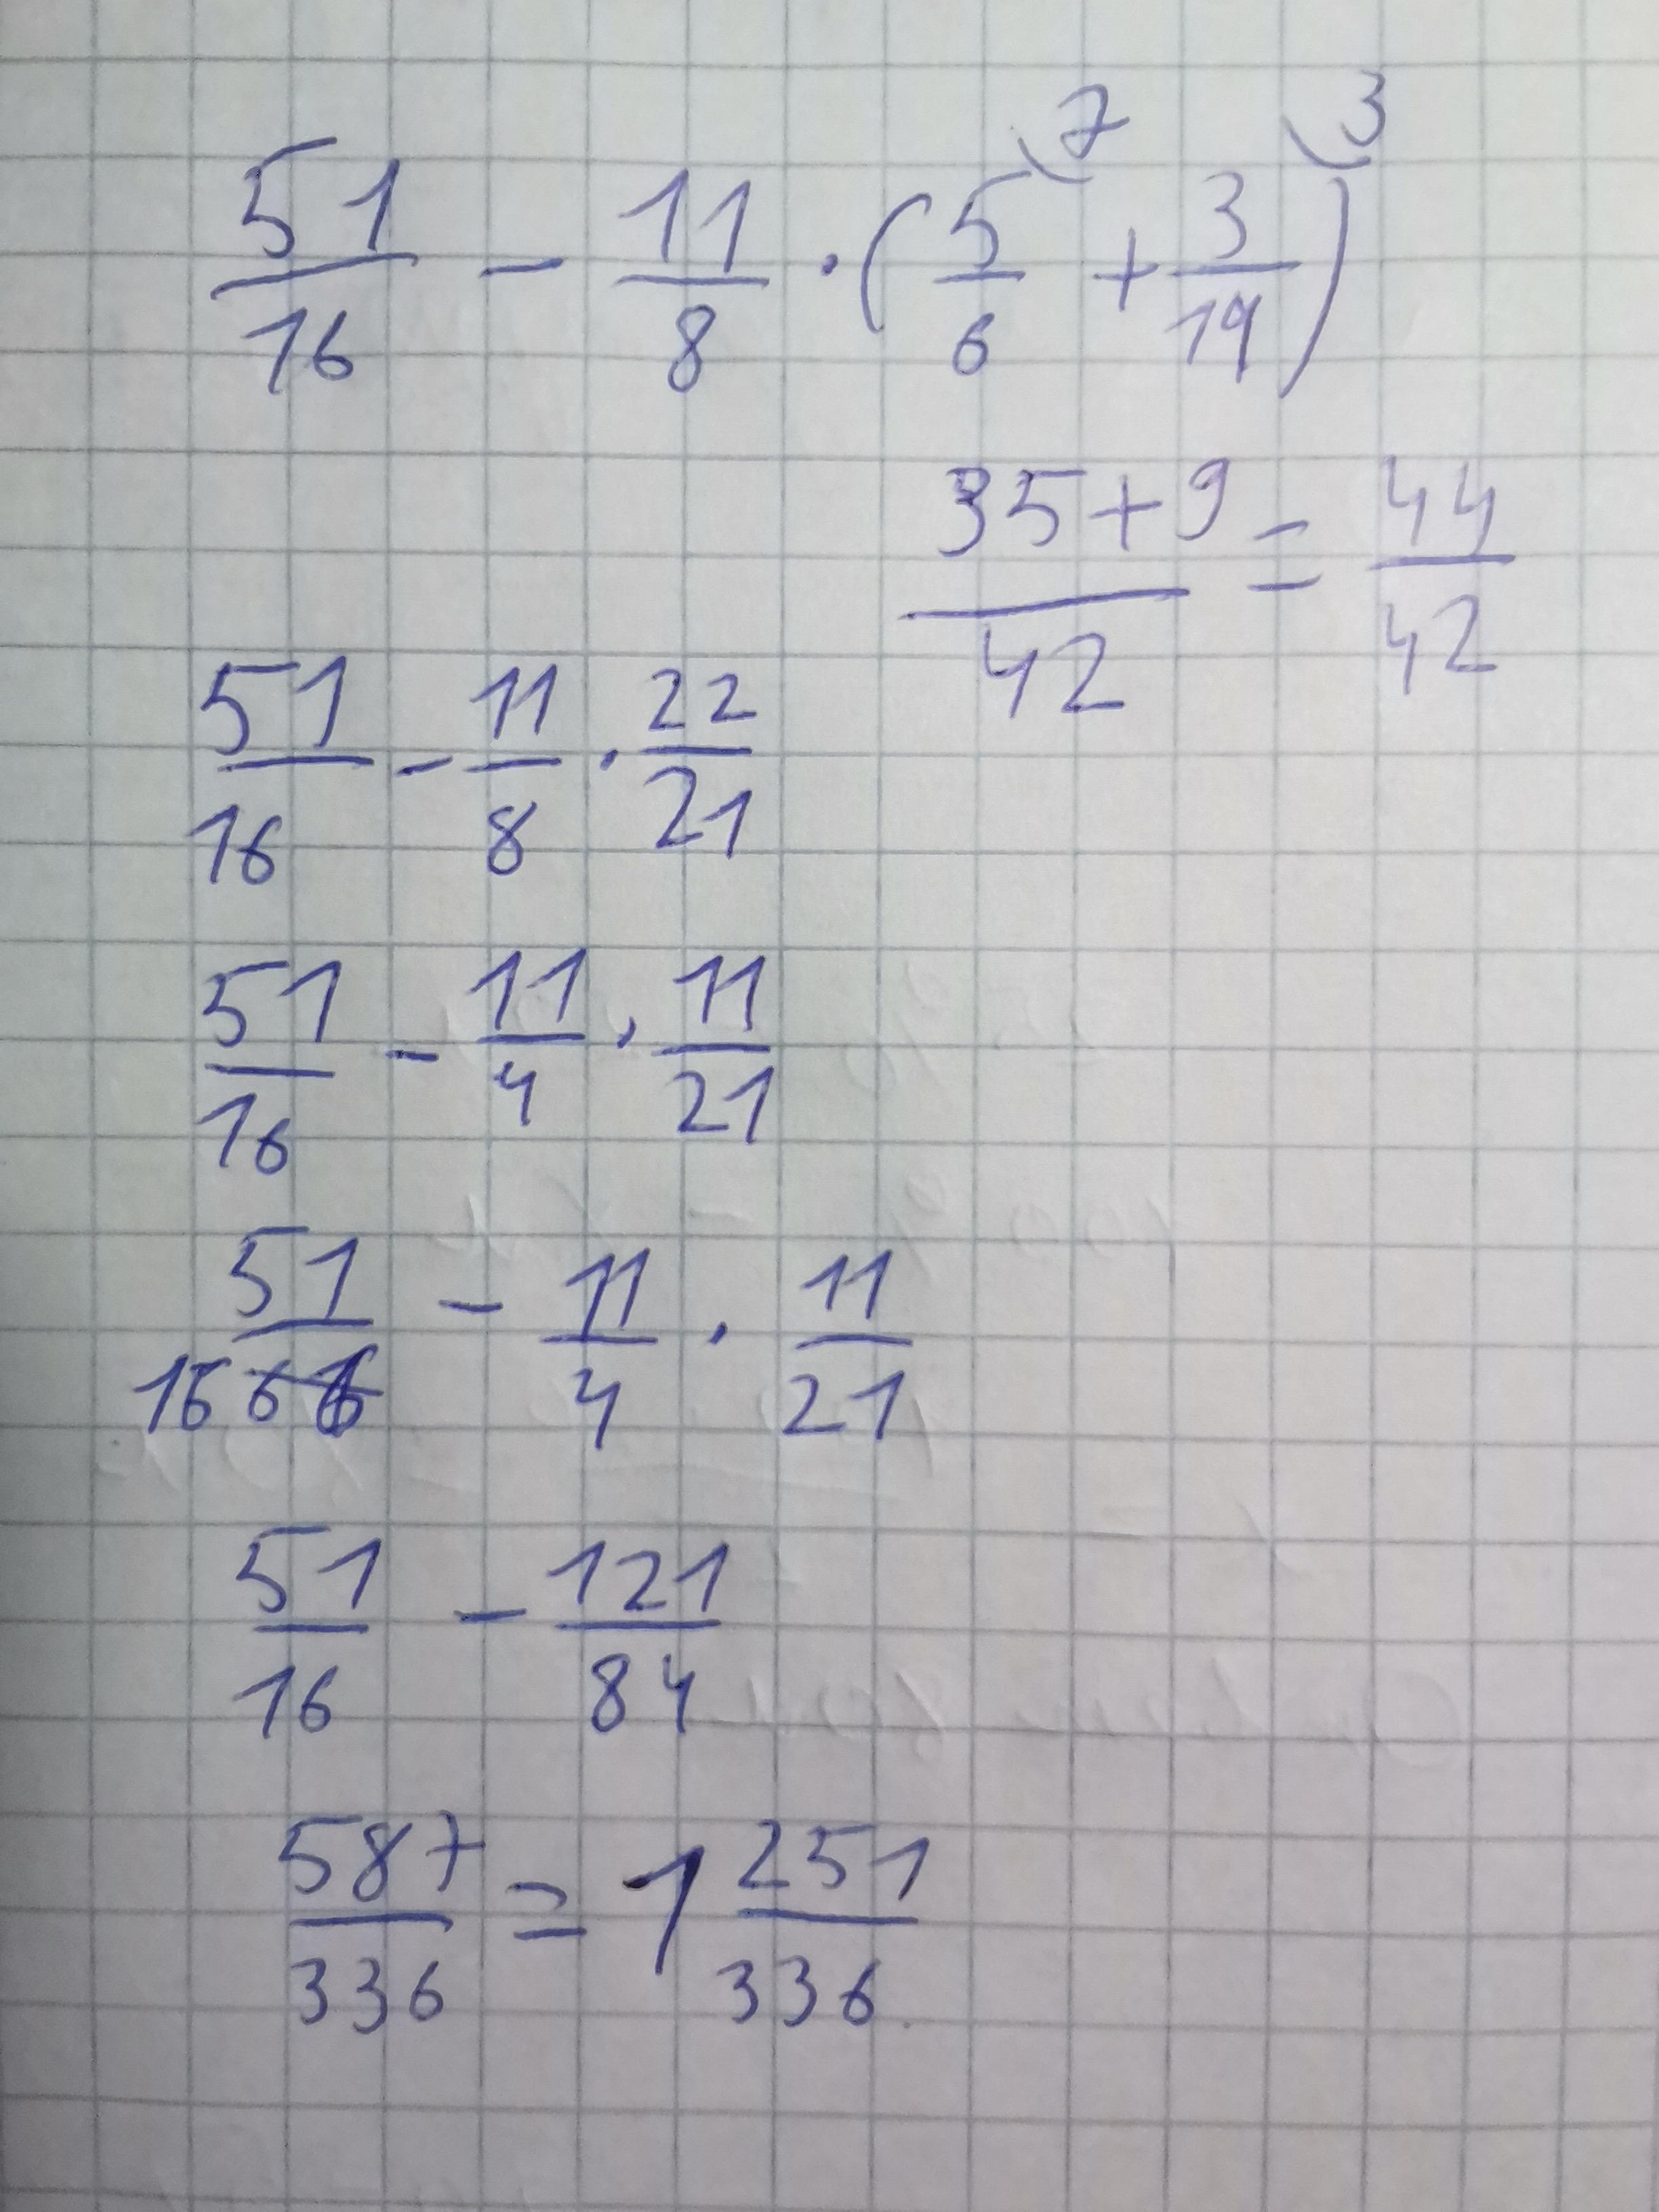 51/16 - 11/8 · (5/6^7 + 3/14)^3
(35+9)/42 = 44/42
51/16 - 11/8 · 22/21
51/16 - 11/4 · 11/21
51/16 - 11/4 · 11/21
51/16 - 121/84
587/336 = 1 251/336